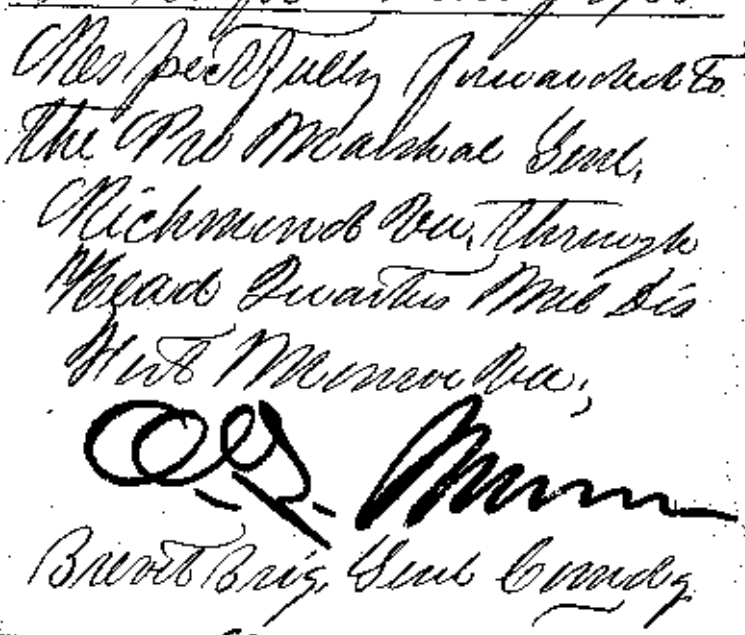 Respectfully forwarded to
the Pro Marshal Genl,
Richmond Va, through
Head Quarters Mil Dis
Fort Monroe Va,
Brevet Brig Genl Comdg